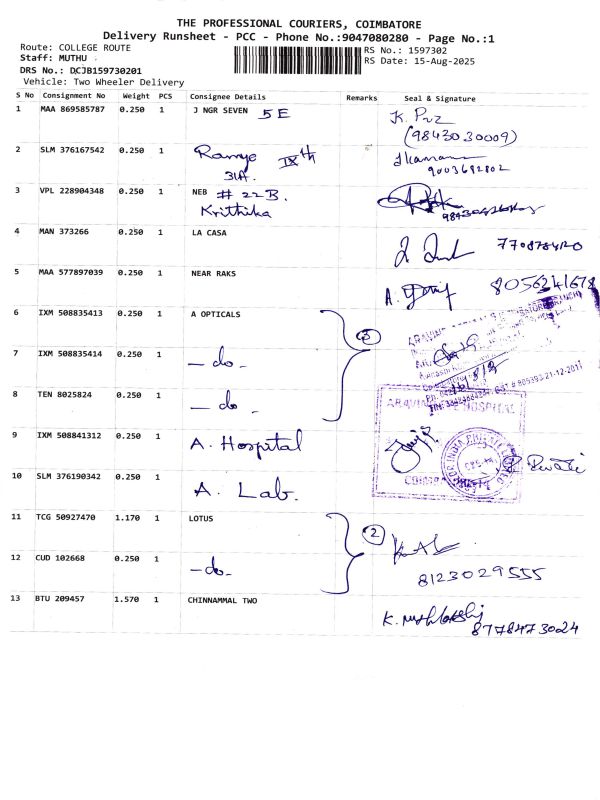 THE PROFESSIONAL COURIERS, COIMBATORE
Delivery Runsheet - PCC - Phone No.:9047080280 - Page No.:1
Route: COLLEGE ROUTE
RS No.: 1597302
Staff: MUTHU
RS Date: 15-Aug-2025
DRS No.: DCJB159730201
Vehicle: Two Wheeler Delivery
S No Consignment No Weight PCS Consignee Details Remarks Seal & Signature
1 MAA 869585787 0.250 1 J NGR SEVEN 5E
(9843030009)
2 SLM 376167542 0.250 1 Ramya IXth
31A.
9003682802
3 VPL 228904348 0.250 1 NEB # 22B.
Krithika
4 MAN 373266 0.250 1 LA CASA
5 MAA 577897039 0.250 1 NEAR RAKS
8056241678
6 IXM 508835413 0.250 1 A OPTICALS
3
7 IXM 508835414 0.250 1 - do -
8 TEN 8025824 0.250 1 - do -
9 IXM 508841312 0.250 1 A. Hospital
HOSPITAL
10 SLM 376190342 0.250 1 A. Lab.
11 TCG 50927470 1.170 1 LOTUS
2
12 CUD 102668 0.250 1 - do -
8123029555
13 BTU 209457 1.570 1 CHINNAMMAL TWO
8778473024